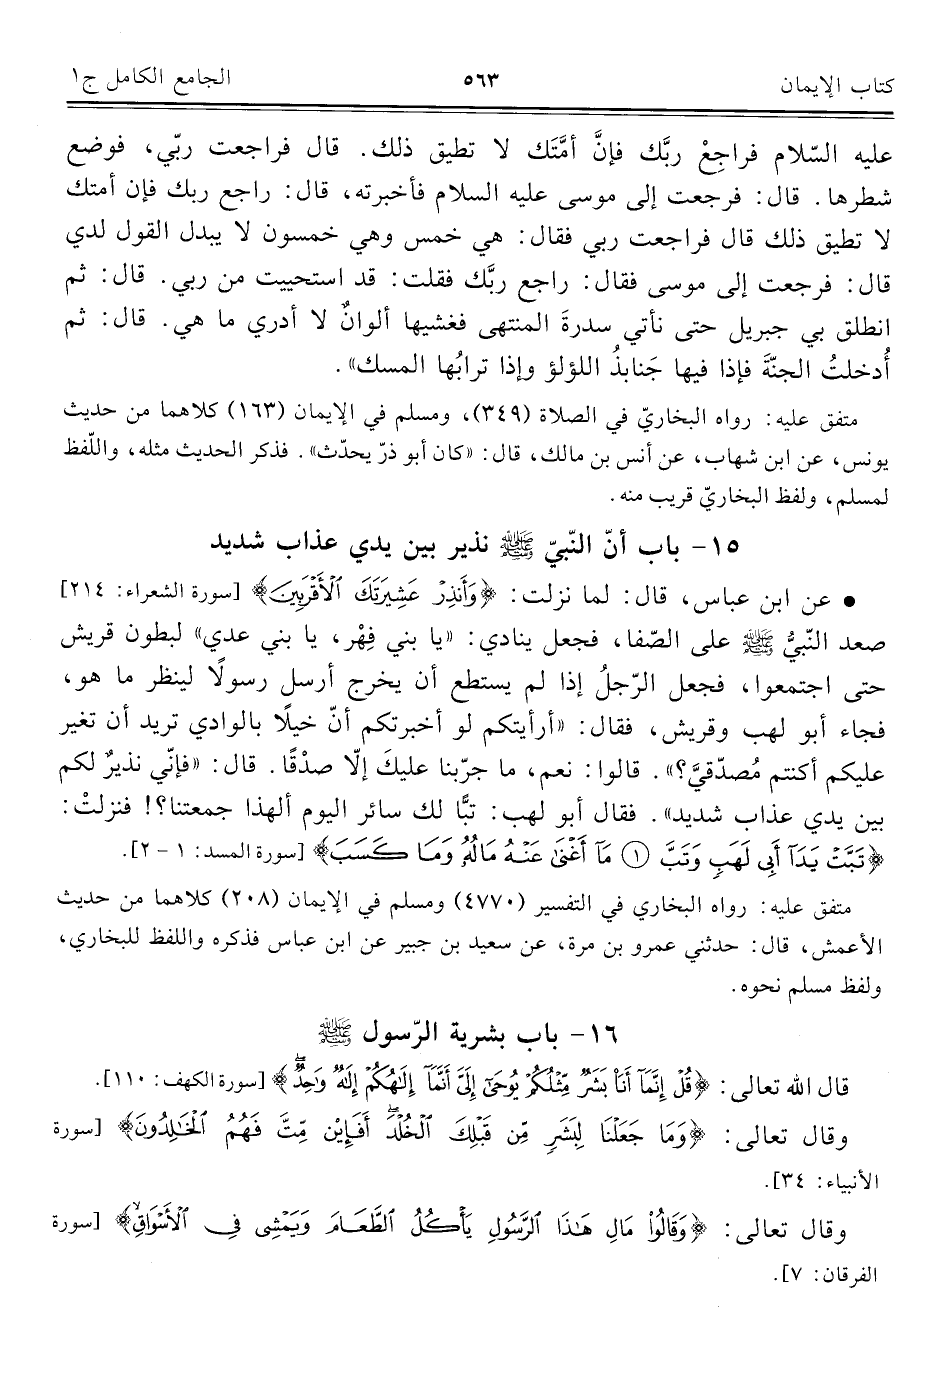 كتاب الإيمان ٥٦٣ الجامع الكامل ج١
عليه السّلام فراجِعْ ربَّك فإنَّ أمَّتَك لا تطيق ذلك. قال فراجعت ربّي، فوضع
شطرها. قال: فرجعت إلى موسى عليه السلام فأخبرته، قال: راجع ربك فإن أمتك
لا تطيق ذلك قال فراجعت ربي فقال: هي خمس وهي خمسون لا يبدل القول لدي
قال: فرجعت إلى موسى فقال: راجع ربَّك فقلت: قد استحييت من ربي. قال: ثم
انطلق بي جبريل حتى نأتي سدرةَ المنتهى فغشيها ألوانٌ لا أدري ما هي. قال: ثم
أُدخلتُ الجنّةَ فإذا فيها جَنابذُ اللؤلؤ وإذا ترابُها المسك».
متفق عليه: رواه البخاريّ في الصلاة (٣٤٩)، ومسلم في الإيمان (١٦٣) كلاهما من حديث
يونس، عن ابن شهاب، عن أنس بن مالك، قال: «كان أبو ذرّ يحدّث». فذكر الحديث مثله، واللّفظ
لمسلم، ولفظ البخاريّ قريب منه.
١٥- باب أنّ النّبيّ ﷺ نذير بين يدي عذاب شديد
• عن ابن عباس، قال: لما نزلت: ﴿وَأَنذِرْ عَشِيرَتَكَ ٱلْأَقْرَبِينَ﴾ [سورة الشعراء: ٢١٤]
صعد النّبيُّ ﷺ على الصّفا، فجعل ينادي: «يا بني فِهْر، يا بني عدي» لبطون قريش
حتى اجتمعوا، فجعل الرّجلُ إذا لم يستطع أن يخرج أرسل رسولًا لينظر ما هو،
فجاء أبو لهب وقريش، فقال: «أرأيتكم لو أخبرتكم أنّ خيلًا بالوادي تريد أن تغير
عليكم أكنتم مُصدّقيَّ؟». قالوا: نعم، ما جرّبنا عليكَ إلّا صدْقًا. قال: «فإنّي نذيرٌ لكم
بين يدي عذاب شديد». فقال أبو لهب: تبًّا لك سائر اليوم ألهذا جمعتنا؟! فنزلتْ:
﴿تَبَّتْ يَدَآ أَبِى لَهَبٍ وَتَبَّ ۝١ مَآ أَغْنَىٰ عَنْهُ مَالُهُۥ وَمَا كَسَبَ﴾ [سورة المسد: ١ - ٢].
متفق عليه: رواه البخاري في التفسير (٤٧٧٠) ومسلم في الإيمان (٢٠٨) كلاهما من حديث
الأعمش، قال: حدثني عمرو بن مرة، عن سعيد بن جبير عن ابن عباس فذكره واللفظ للبخاري،
ولفظ مسلم نحوه.
١٦- باب بشرية الرّسول ﷺ
قال الله تعالى: ﴿قُلْ إِنَّمَآ أَنَا۠ بَشَرٌ مِّثْلُكُمْ يُوحَىٰٓ إِلَىَّ أَنَّمَآ إِلَٰهُكُمْ إِلَٰهٌ وَٰحِدٌ ۖ﴾ [سورة الكهف: ١١٠].
وقال تعالى: ﴿وَمَا جَعَلْنَا لِبَشَرٍ مِّن قَبْلِكَ ٱلْخُلْدَ ۖ أَفَإِي۟ن مِّتَّ فَهُمُ ٱلْخَٰلِدُونَ﴾ [سورة
الأنبياء: ٣٤].
وقال تعالى: ﴿وَقَالُوا۟ مَالِ هَٰذَا ٱلرَّسُولِ يَأْكُلُ ٱلطَّعَامَ وَيَمْشِى فِى ٱلْأَسْوَاقِ ۙ﴾ [سورة
الفرقان: ٧].